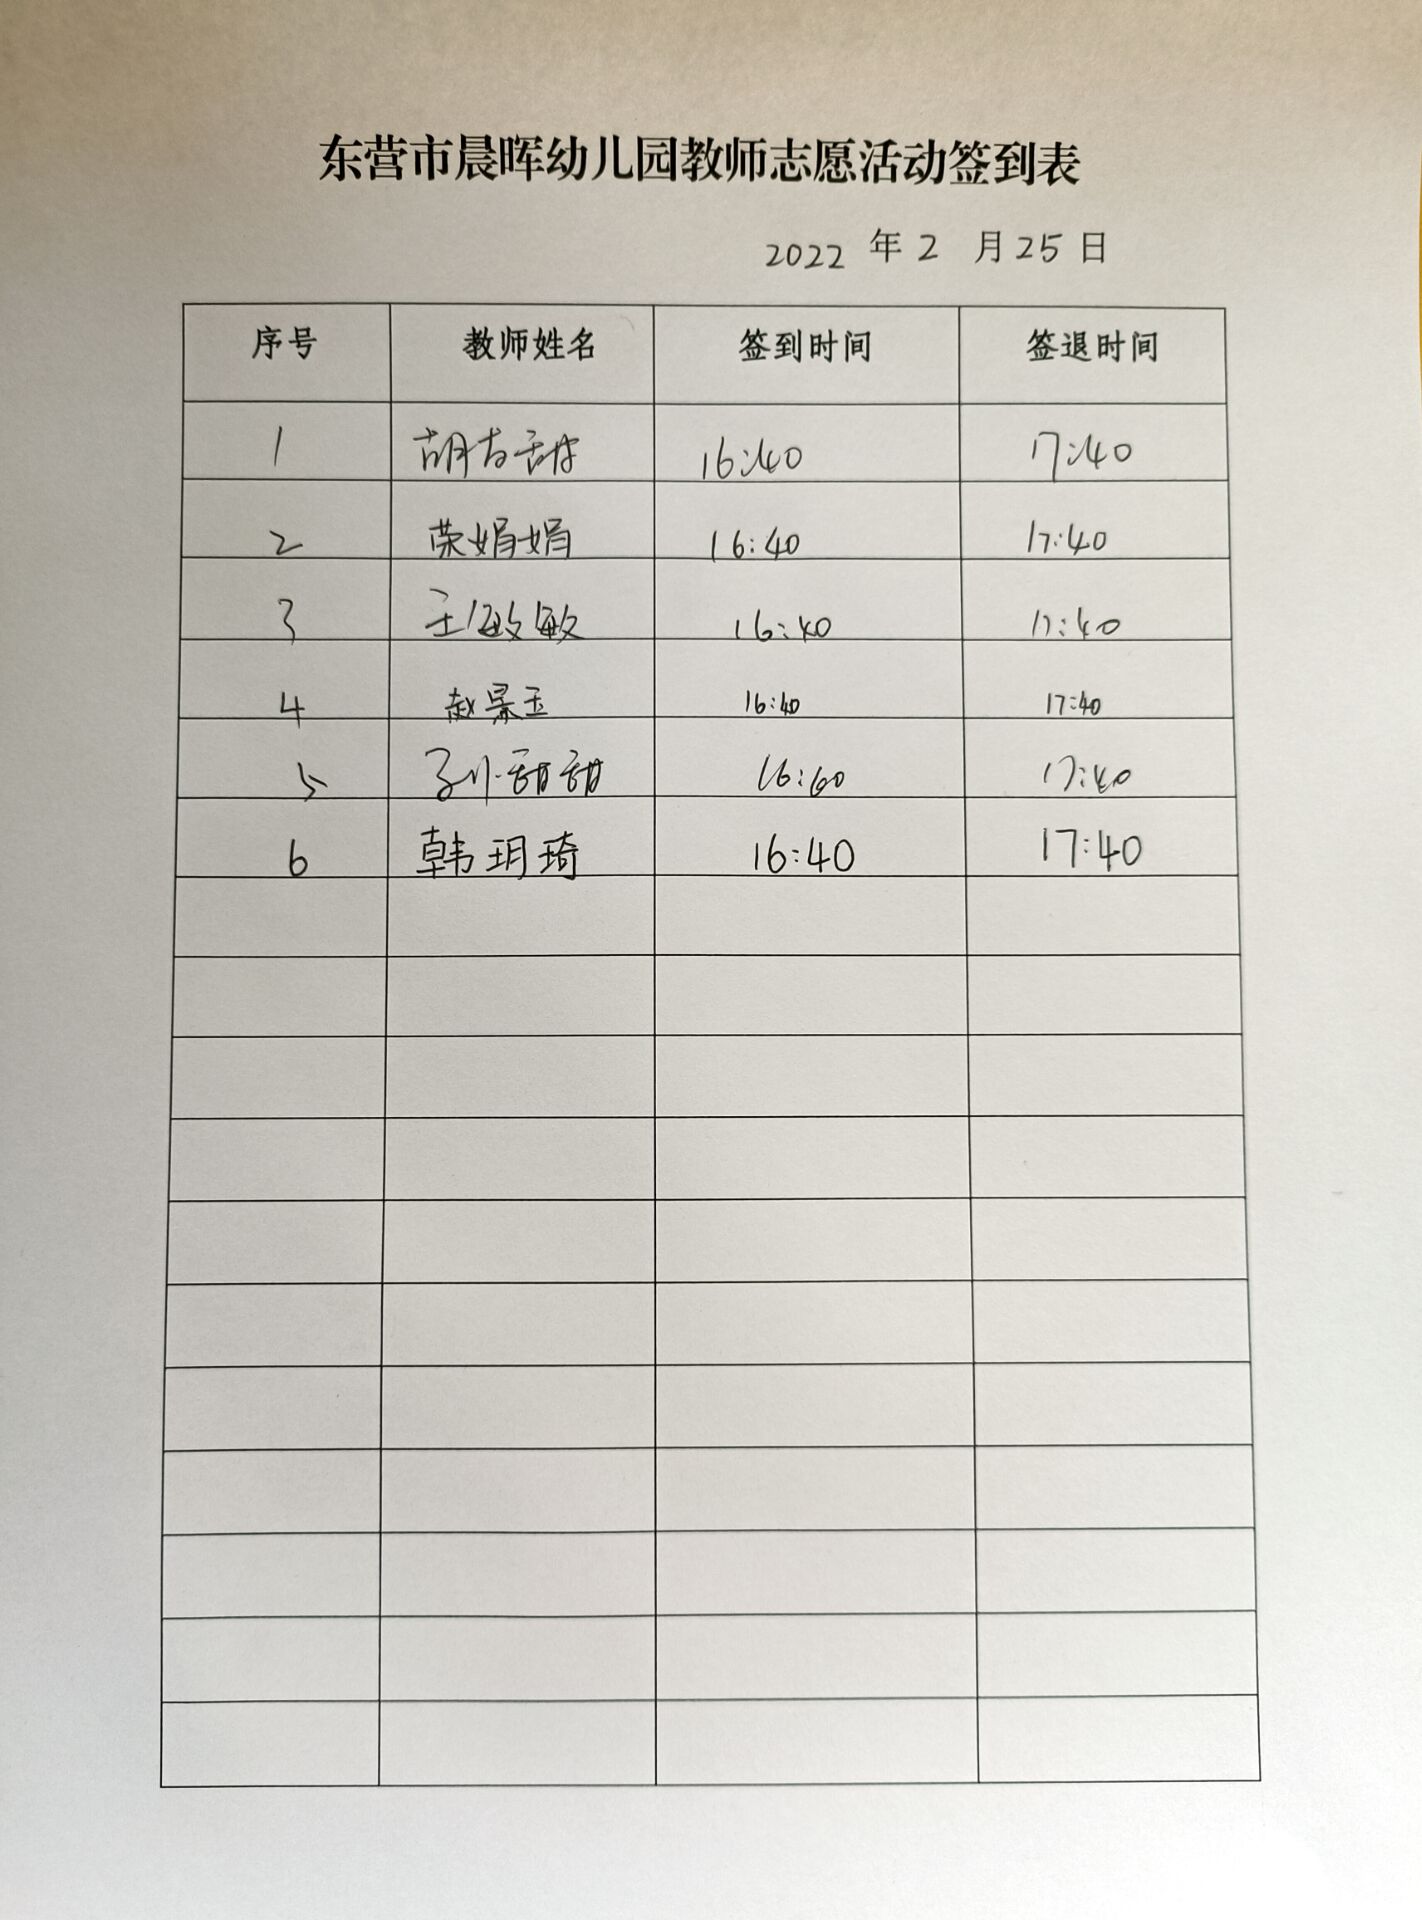 东营市晨晖幼儿园教师志愿活动签到表
2022 年 2 月 25 日
序号 教师姓名 签到时间 签退时间
1 胡吉甜 16:40 17:40
2 荣娟娟 16:40 17:40
3 王敏敏 16:40 17:40
4 赵景玉 16:40 17:40
5 孙甜甜 16:60 17:40
6 韩玥琦 16:40 17:40